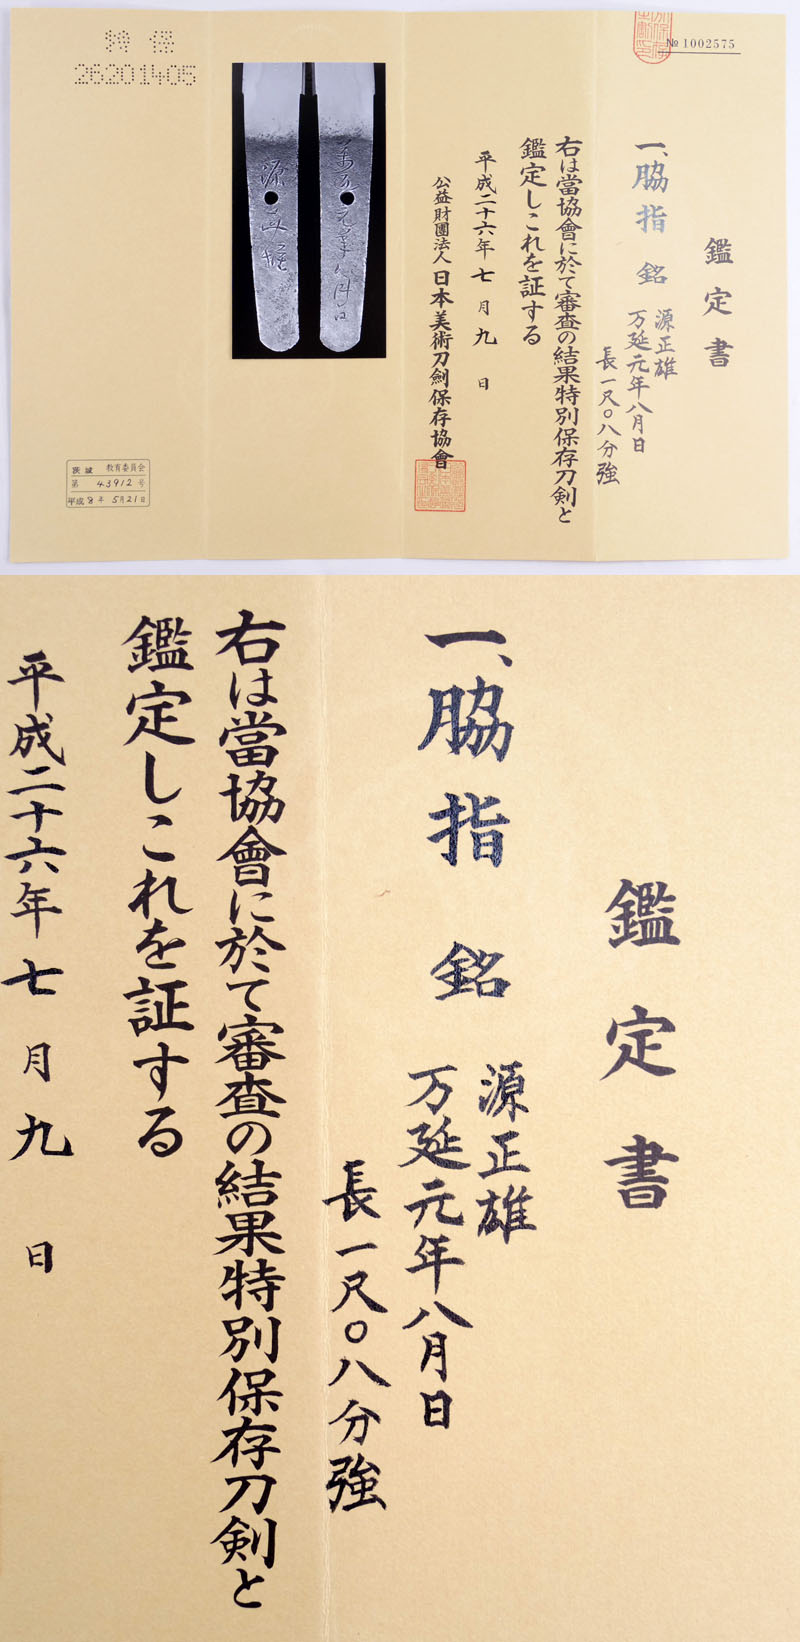 № 1002575
鑑定書
一、脇指 銘 源正雄
万延元年八月日
長一尺〇八分強
右は當協會に於て審査の結果特別保存刀剣と
鑑定しこれを証する
平成二十六年七月九日
公益財團法人日本美術刀劍保存協會
特保
26201405
茨城 教育委員会
第 43912 号
平成 8年 5月21日
鑑定書
一、脇指 銘 源正雄
万延元年八月日
長一尺〇八分強
右は當協會に於て審査の結果特別保存刀剣と
鑑定しこれを証する
平成二十六年七月九日